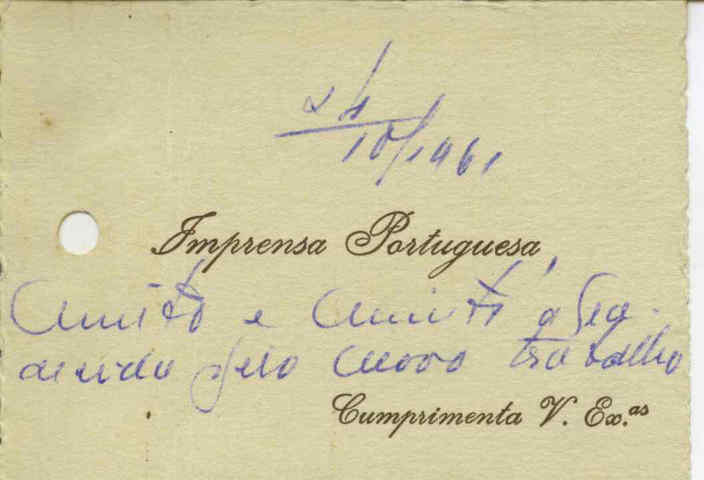 24
10/1961
Imprensa Portuguesa
Muito e Muito agra-
decida pelo novo trabalho
Cumprimenta V. Ex.as